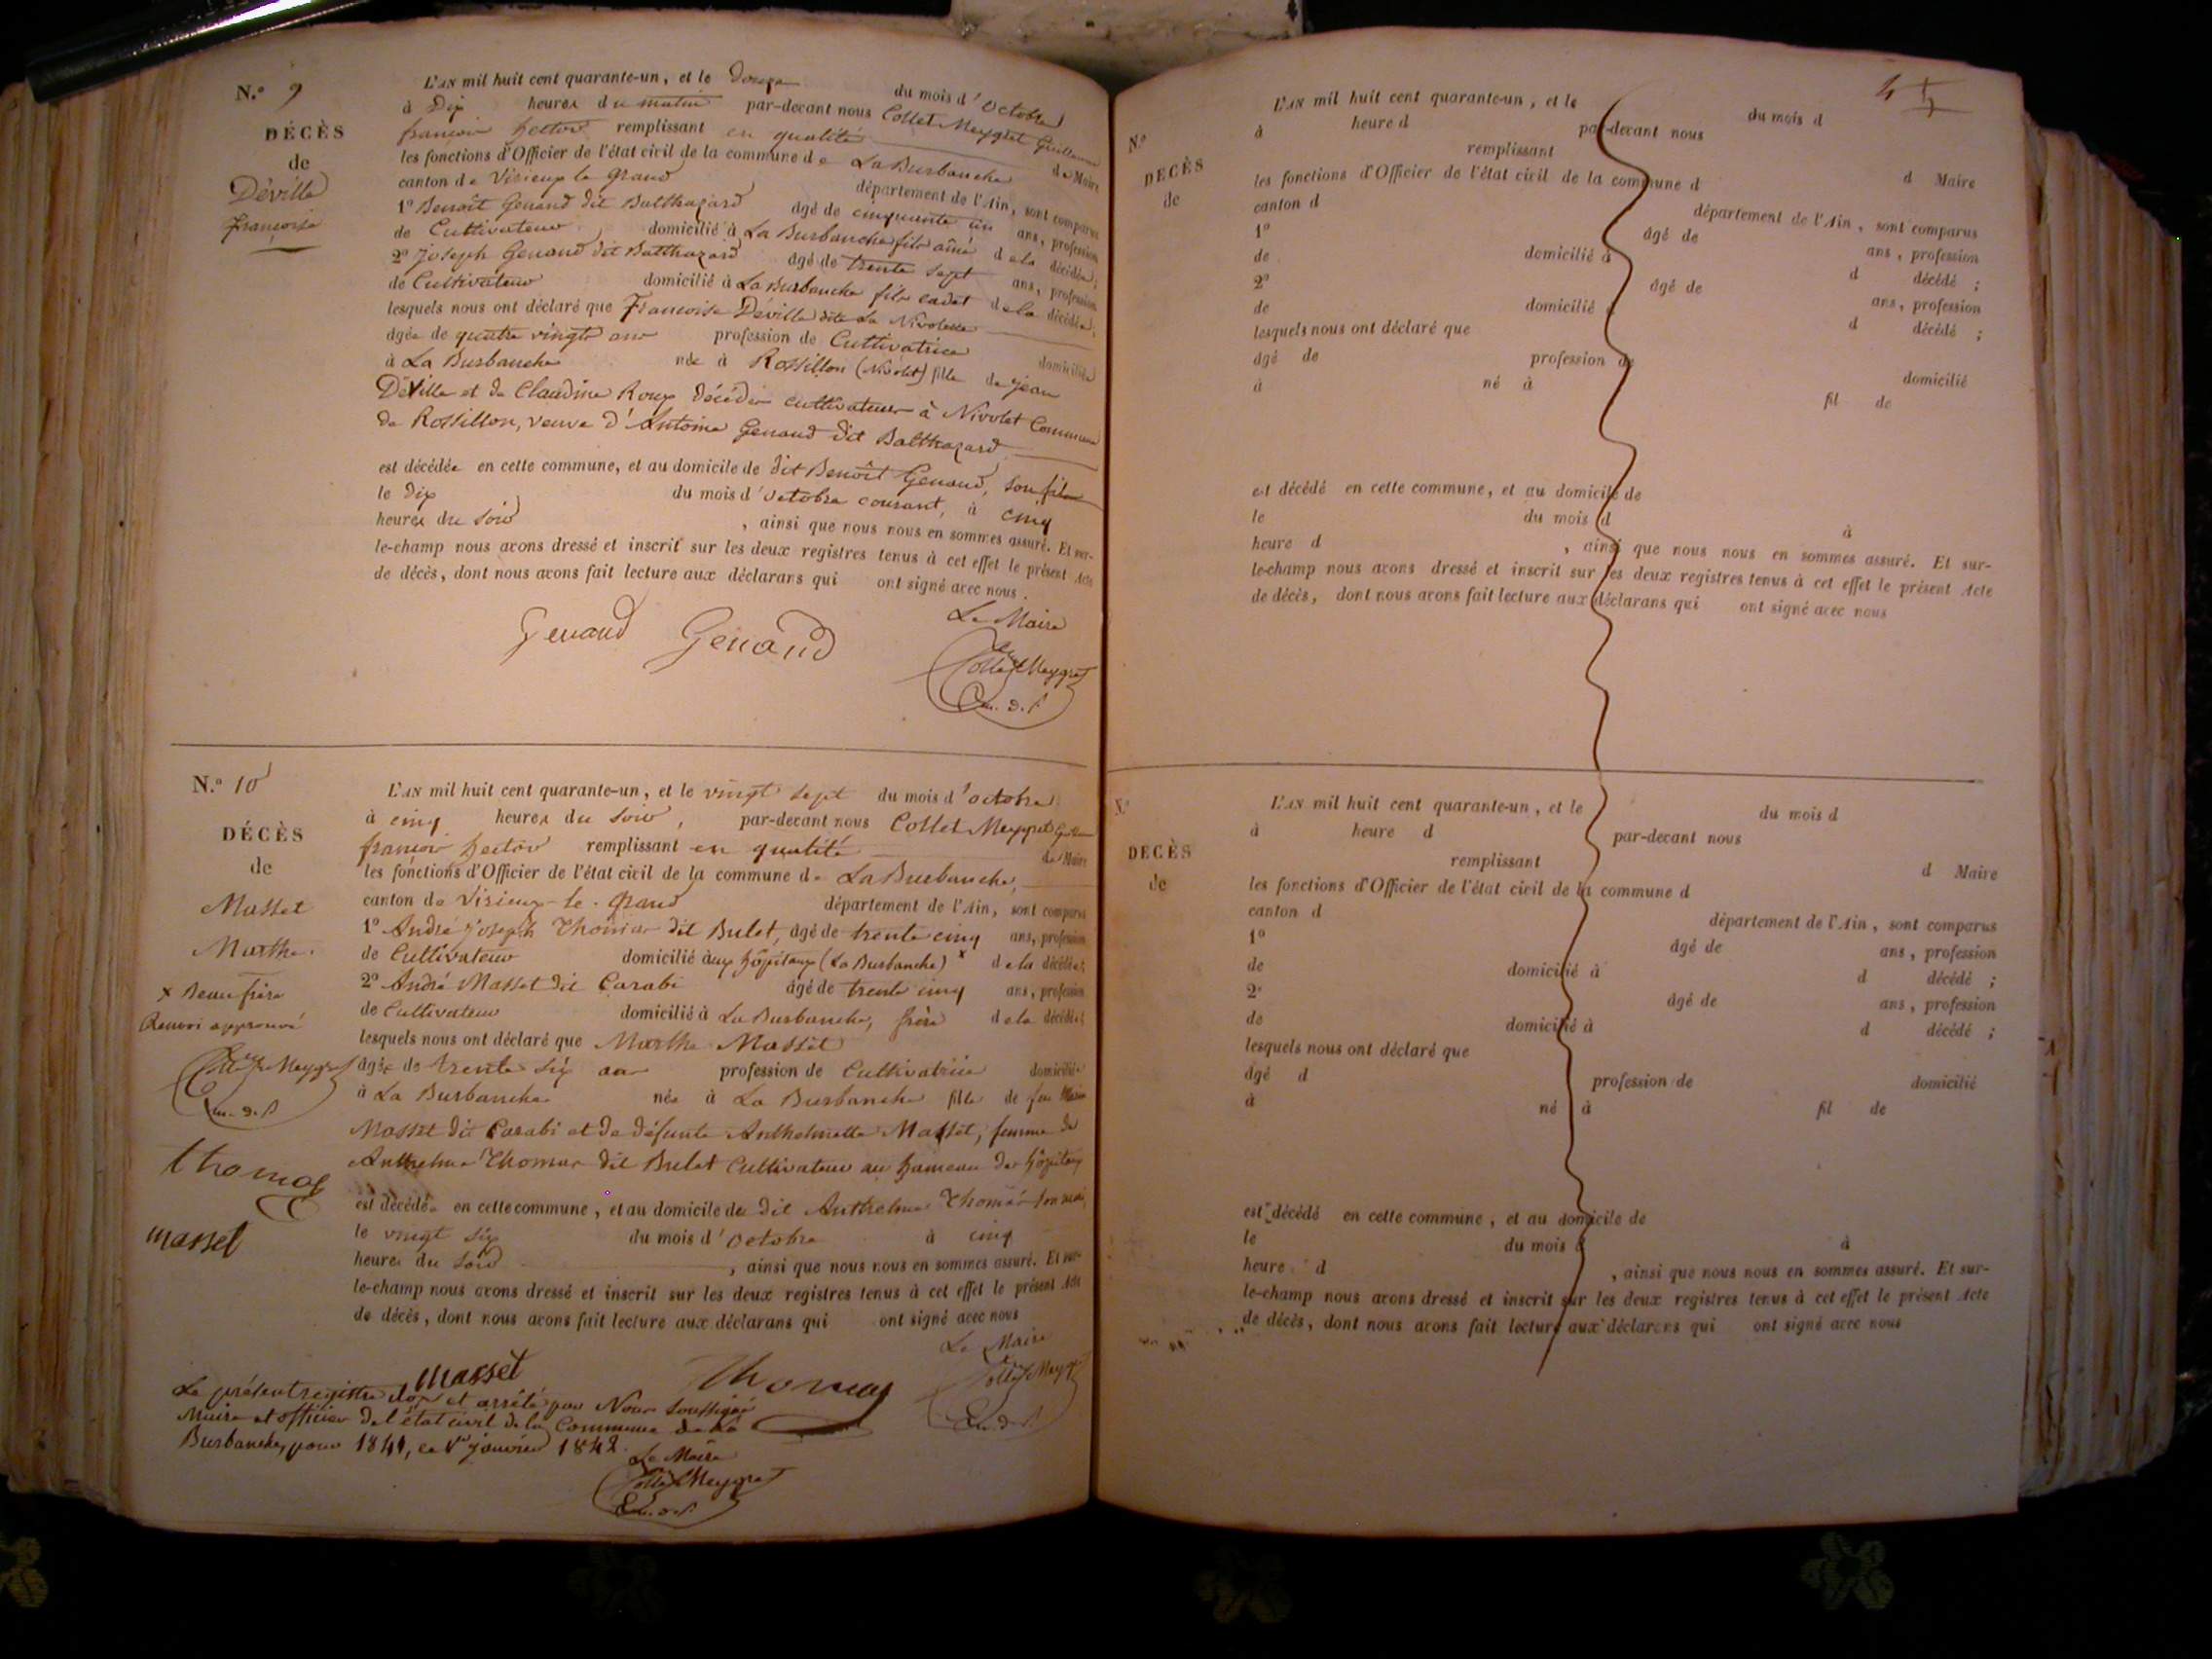 N.° 9
DÉCÈS
de
Déville
françoise
L'AN mil huit cent quarante-un, et le Douze du mois d'Octobre
à Dix heures du matin par-devant nous Collet Meygret Guillaume
françois hector remplissant en qualité de Maire
les fonctions d'Officier de l'état civil de la commune de La Burbanche
canton de Virieux le Grand département de l'Ain, sont comparus
1° Benoît Genand dit Balthazard âgé de cinquante un ans, profession
de Cultivateur domicilié à La Burbanche fils aîné de la décédée;
2° Joseph Genand dit Balthazard âgé de trente sept ans, profession
de Cultivateur domicilié à La Burbanche fils cadet de la décédée;
lesquels nous ont déclaré que Françoise Déville dite La Nivolette
âgée de quatre vingts ans profession de Cultivatrice domiciliée
à La Burbanche née à Rossillon (Nivolet) fille de Jean
Déville et de Claudine Roux décédés cultivateurs à Nivolet Commune
de Rossillon, veuve d'Antoine Genand dit Balthazard
est décédée en cette commune, et au domicile de dit Benoît Genand, son fils
le dix du mois d'octobre courant, à cinq
heures du soir, ainsi que nous nous en sommes assuré. Et sur-
le-champ nous avons dressé et inscrit sur les deux registres tenus à cet effet le présent Acte
de décès, dont nous avons fait lecture aux déclarans qui ont signé avec nous.
Le Maire
Genand Genand Collet Meygret
N.° 10
DÉCÈS
de
Masset
Marthe.
x Beau frère
Renvoi approuvé
Collet Meygret
thomas
masset
L'AN mil huit cent quarante-un, et le vingt sept du mois d'octobre
à cinq heures du soir, par-devant nous Collet Meygret
françois hector remplissant en qualité de Maire
les fonctions d'Officier de l'état civil de la commune de La Burbanche,
canton de Virieux-le-Grand département de l'Ain, sont comparus
1° André Joseph Thomas dit Bulet, âgé de trente cinq ans, profession
de Cultivateur domicilié aux hôpitaux (La Burbanche) x de la décédée;
2° André Masset dit Carabi âgé de trente cinq ans, profession
de Cultivateur domicilié à La Burbanche, frère de la décédée;
lesquels nous ont déclaré que Marthe Masset
âgée de trente six ans profession de Cultivatrice domiciliée
à La Burbanche née à La Burbanche fille de feu
Masset dit Carabi et de défunte Anthelmette Masset, femme de
Anthelme Thomas dit Bulet Cultivateur au hameau des hôpitaux
est décédée en cette commune, et au domicile de dit Anthelme Thomas son mari,
le vingt six du mois d'octobre à cinq
heures du soir, ainsi que nous nous en sommes assuré. Et sur-
le-champ nous avons dressé et inscrit sur les deux registres tenus à cet effet le présent Acte
de décès, dont nous avons fait lecture aux déclarans qui ont signé avec nous
Le Maire
masset Thomas Collet Meygret
Le présent registre clos et arrêté par Nous soussigné
Maire et officier de l'état civil de la Commune de La
Burbanche, pour 1841, ce 1er janvier 1842.
Le Maire
Collet Meygret
N.°
DÉCÈS
de
L'AN mil huit cent quarante-un, et le du mois d
à heure d par-devant nous
remplissant d Maire
les fonctions d'Officier de l'état civil de la commune d
canton d département de l'Ain, sont comparus
1° âgé de ans, profession
de domicilié à d décédé ;
2° âgé de ans, profession
de domicilié à d décédé ;
lesquels nous ont déclaré que
âgé de profession de domicilié
à né à fil de
est décédé en cette commune, et au domicile de
le du mois d à
heure d , ainsi que nous nous en sommes assuré. Et sur-
le-champ nous avons dressé et inscrit sur les deux registres tenus à cet effet le présent Acte
de décès, dont nous avons fait lecture aux déclarans qui ont signé avec nous
N.°
DÉCÈS
de
L'AN mil huit cent quarante-un, et le du mois d
à heure d par-devant nous
remplissant d Maire
les fonctions d'Officier de l'état civil de la commune d
canton d département de l'Ain, sont comparus
1° âgé de ans, profession
de domicilié à d décédé ;
2° âgé de ans, profession
de domicilié à d décédé ;
lesquels nous ont déclaré que
âgé d profession de domicilié
à né à fil de
est décédé en cette commune, et au domicile de
le du mois d à
heure d , ainsi que nous nous en sommes assuré. Et sur-
le-champ nous avons dressé et inscrit sur les deux registres tenus à cet effet le présent Acte
de décès, dont nous avons fait lecture aux déclarans qui ont signé avec nous